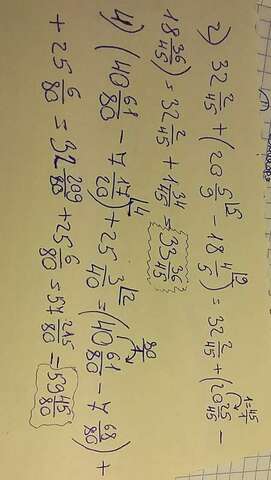 2) 32 2/45 + (20 5/9 - 18 4/5) = 32 2/45 + (20 25/45 -
18 36/45) = 32 2/45 + 1 34/45 = 33 36/45
4) (40 61/80 - 7 17/20) + 25 3/40 = (40 61/80 - 7 68/80) +
+ 25 6/80 = 32 209/80 + 25 6/80 = 57 215/80 = 59 45/80